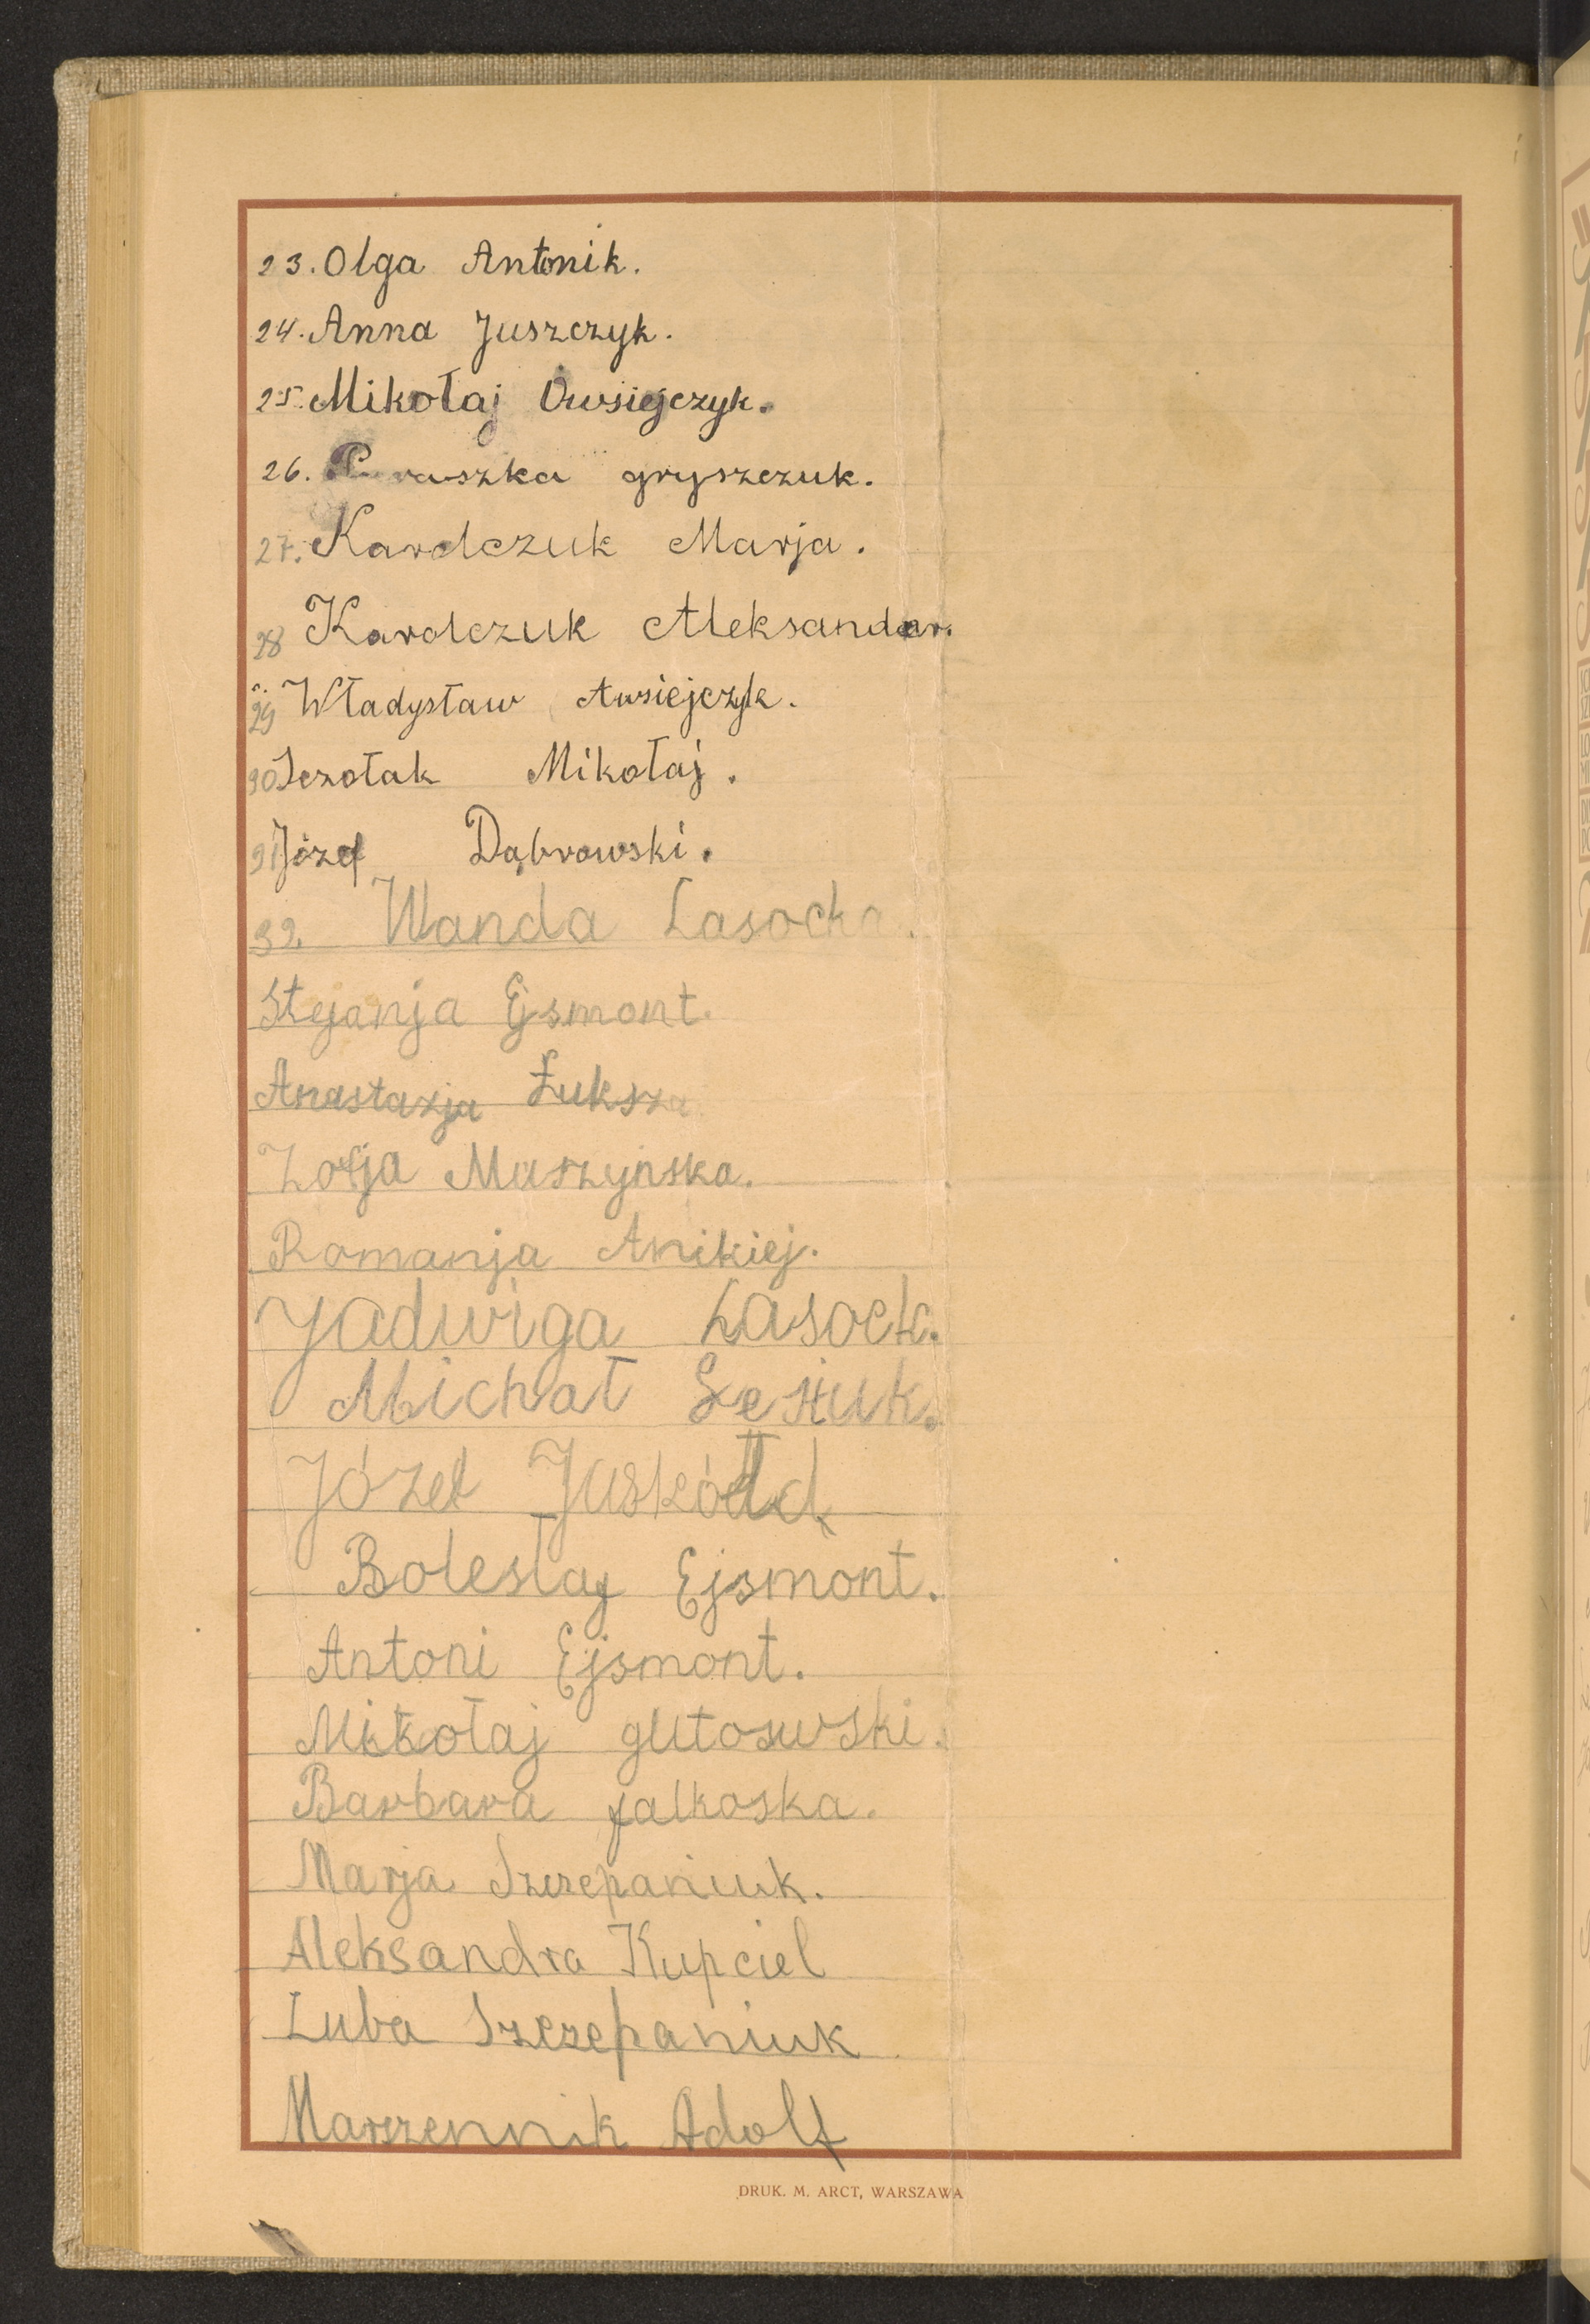 23. Olga Antonik.
24. Anna Juszczyk.
25. Mikołaj Owsiejczyk.
26. Paraszka gryszczuk.
27. Karolczuk Marja.
28 Karolczuk Aleksander.
29 Władysław Awsiejczyk.
30 Sczołak Mikołaj.
31 Józef Dąbrowski.
32. Wanda Lasocka.
Stefanja Ejsmont.
Anastazja Łuksza
Zofja Muszyńska.
Romanja Anikiej.
Jadwiga Lasock.
Michał
Józef
Bolesław Ejsmont.
Antoni Ejsmont.
Mikołaj gutowski.
Barbara falkoska.
Marja Szczepaniuk.
Aleksandra Kupciel
Luba Szczepaniuk
Marszennik Adolf
DRUK. M. ARCT, WARSZAWA